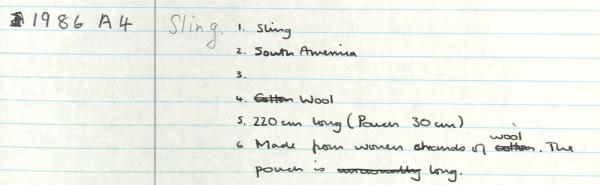 1986 A4 Sling. 1. Sling
2. South America
3.
4. Cotton Wool
5. 220 cm long (Pouch 30 cm)
6 Made from woven strands of cotton wool. The
pouch is unusually long.